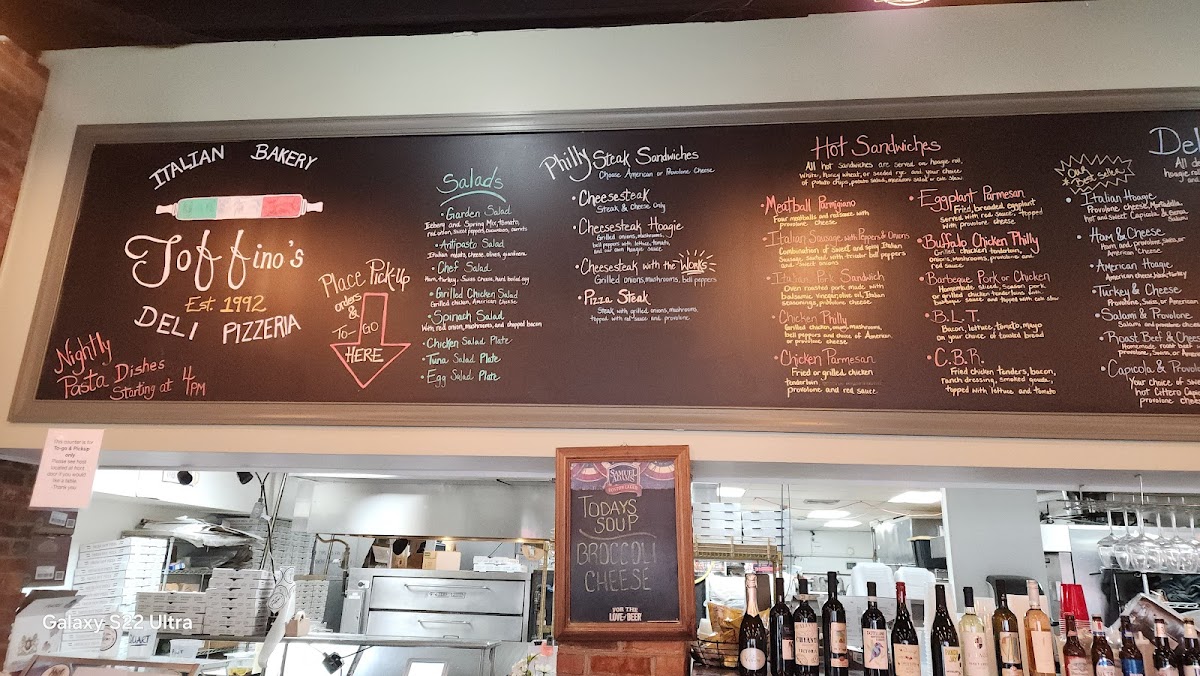 ITALIAN BAKERY
Toffino's
Est. 1992
DELI PIZZERIA
Nightly
Pasta Dishes
Starting at 4PM
Place Pick-Up
orders
&
To-GO
HERE
Salads
• Garden Salad
Iceberg and Spring Mix, tomato,
red onion, sweet peppers, cucumbers, carrots
• Antipasto Salad
Italian meats, cheese, olives,
• Chef Salad
Ham, Turkey, Swiss Cheese, hard boiled egg
• Grilled Chicken Salad
Grilled chicken, American Cheese
• Spinach Salad
With red onion, mushrooms, and chopped bacon
• Chicken Salad Plate
• Tuna Salad Plate
• Egg Salad Plate
Philly Steak Sandwiches
Choose American or Provolone Cheese
• Cheesesteak
Steak & Cheese Only
• Cheesesteak Hoagie
Grilled onions, mushrooms,
bell peppers with lettuce, tomato,
and our own hoagie sauce
• Cheesesteak with the WORKS
Grilled onions, mushrooms, bell peppers
• Pizza Steak
Steak with grilled onions, mushrooms,
topped with red sauce and provolone
Hot Sandwiches
All hot Sandwiches are served on hoagie roll,
White, honey wheat, or seeded rye and your choice
of potato chips, potato salad, macaroni salad or cole slaw.
• Meatball Parmigiano
Four meatballs and red sauce with
provolone cheese
• Italian Sausage with Peppers & Onions
Combination of sweet and spicy Italian
Sausage. Sautéed with tricolor bell peppers
and sweet onions
• Italian Pork Sandwich
Oven roasted pork made with
balsamic vinegar, olive oil, Italian
seasonings, provolone cheese
• Chicken Philly
Grilled chicken, onions, mushrooms,
bell peppers and choice of American
or provolone cheese
• Chicken Parmesan
Fried or grilled chicken
tenderloin
provolone and red sauce
• Eggplant Parmesan
Fried, breaded eggplant
served with red sauce, topped
with provolone cheese
• Buffalo Chicken Philly
Grilled chicken tenderloin,
Onions, Mushrooms, provolone and
red sauce
• Barbeque Pork or Chicken
Homemade sliced, Season pork
or grilled chicken tenderloins
sauce and topped with cole slaw
• B.L.T.
Bacon, lettuce, tomato, mayo
On your choice of toasted bread
• C.B.R.
Fried chicken tenders, bacon,
ranch dressing, smoked gouda,
topped with lettuce and tomato
Del
OUR
Best seller
• Italian Hoagie
Provolone cheese, Mortadella,
hot and sweet Capicola & Genoa
Salami
• Ham & Cheese
Ham and provolone, Swiss, or
American Cheese
• American Hoagie
American cheese, ham, turkey
• Turkey & Cheese
Provolone, Swiss, or American
• Salami & Provolone
Salami and provolone chees
• Roast Beef & Chees
Homemade roast beef
provolone, Swiss, or Ame
• Capicola & Provolo
Your choice of s
hot Cittero Capic
provolone chees
This counter is for
To-go & Pickup
only
Please see host
located at front
door if you would
like a table.
Thank you
SAMUEL
ADAMS
TODAYS
SOUP
BROCCOLI
CHEESE
FOR THE
LOVE OF BEER
Galaxy S22 Ultra